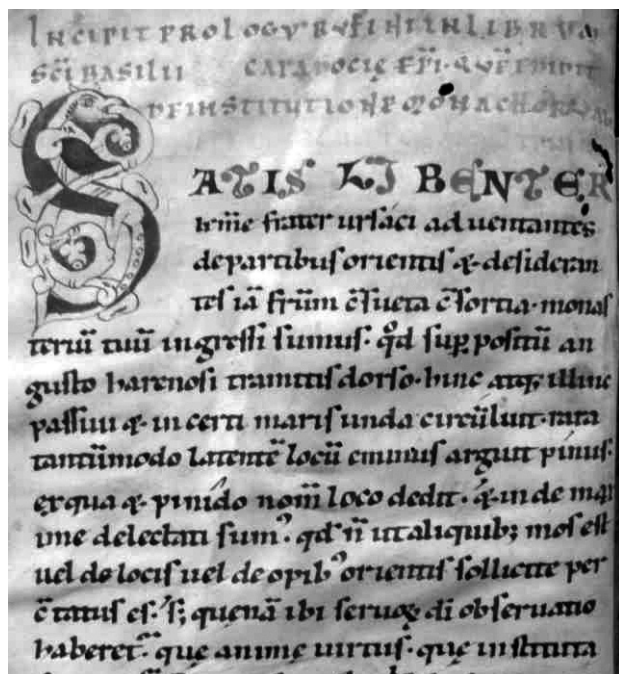 INCIPIT PROLOGVS RVFINI IN LIBRVM
SC̄I BASILII CAPADOCIĘ EP̄I· QVEM
DE INSTITUTIONE MONACHORVM
SATIS LIBENTER
krīme frater ursaci aduentantes
departibus orientis & desideran
tes iā fr̄um c̄sueta c̄sortia· monas
teriū tuū ingressi sumus· qd̄ sup positū an
gusto harenosi tramitis dorso· hinc atq; illinc
passiui & incerti maris unda circūluit· rara
tantūmodo latentē locū eminus arguit pinus·
exqua & pinido nom̄ loco dedit· & inde max
ime delectati sum᾿· qd̄ n̄ ut aliquib; mos est
uel de locis uel de opib᾿ orientis sollicite per
c̄tatus es· s; quenā ibi seruoꝝ dī obseruatio
haberet᾿ que anime uirtus· que instituta